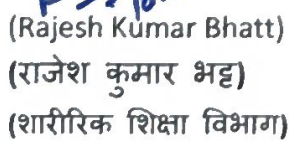 (Rajesh Kumar Bhatt)
(राजेश कुमार भट्ट)
(शारीरिक शिक्षा विभाग)